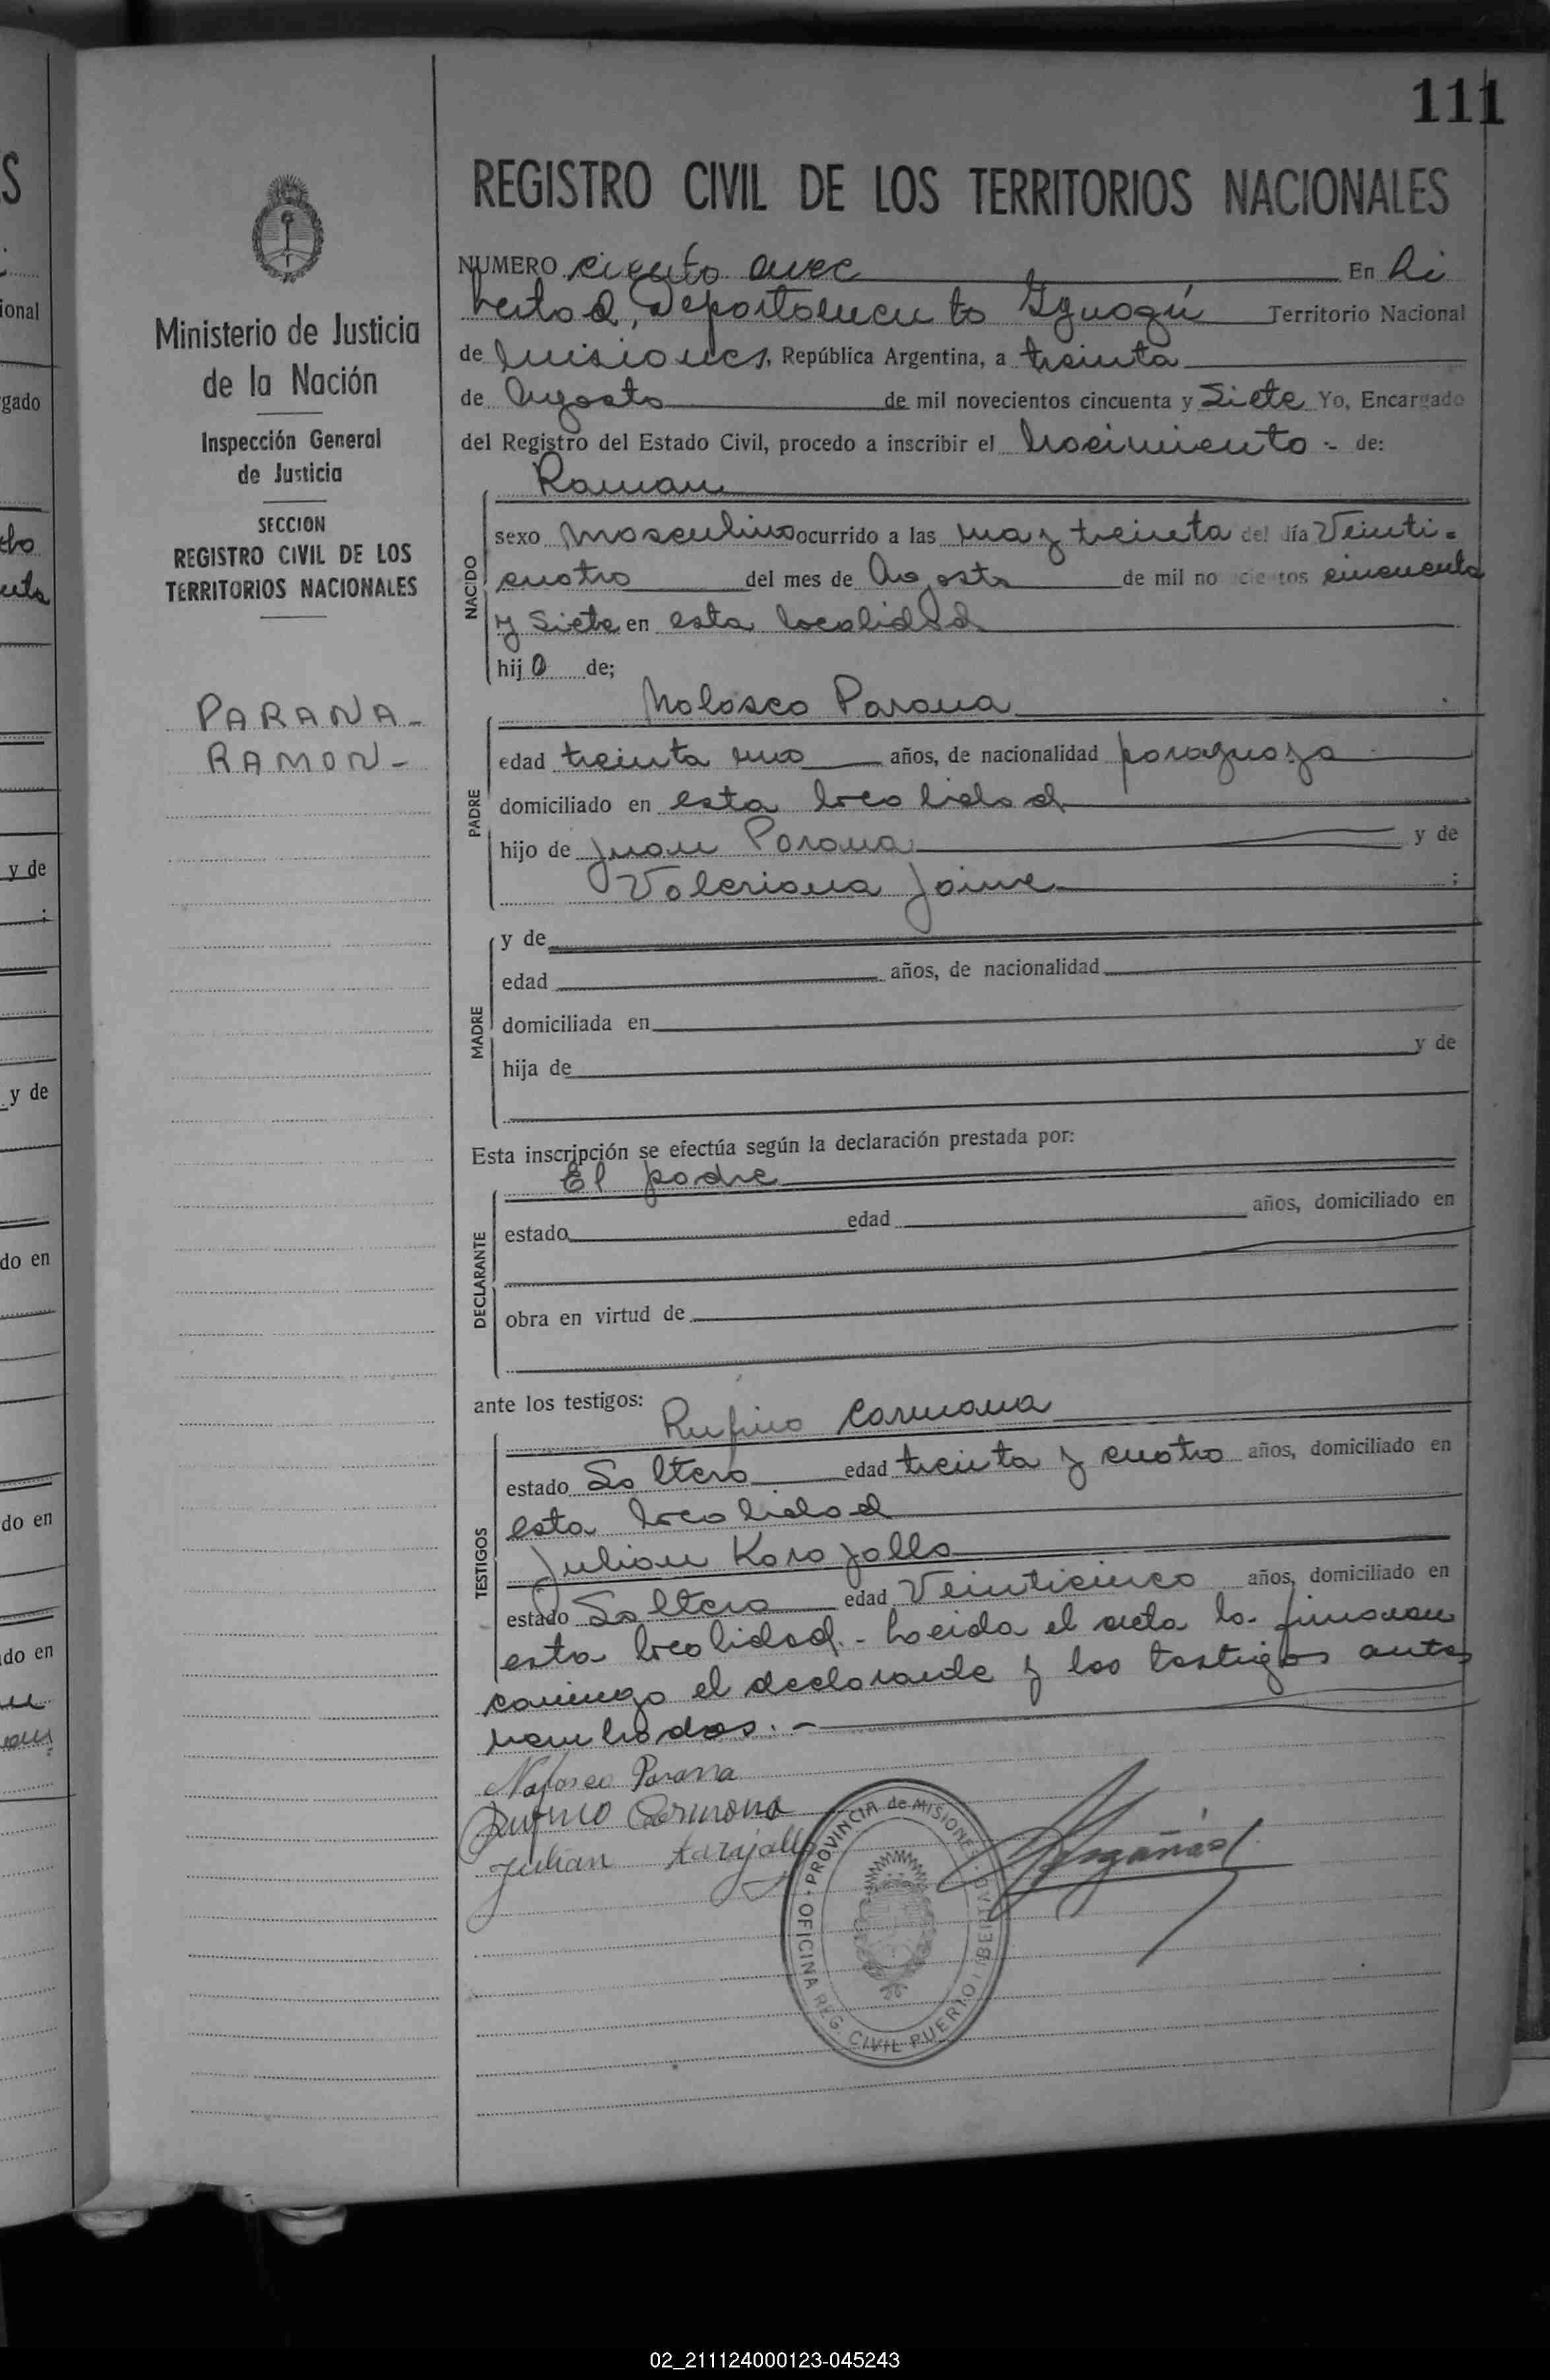 111
REGISTRO CIVIL DE LOS TERRITORIOS NACIONALES
Ministerio de Justicia
de la Nación
Inspección General
de Justicia
SECCION
REGISTRO CIVIL DE LOS
TERRITORIOS NACIONALES
PARANA-
RAMON-
NUMERO ciento once En Li
bertad, Departamento Iguazú Territorio Nacional
de Misiones, República Argentina, a treinta
de Agosto de mil novecientos cincuenta y Siete Yo, Encargado
del Registro del Estado Civil, procedo a inscribir el Nacimiento - de:
Raman
NACIDO
sexo Masculino ocurrido a las una y treinta del día Veinti-
cuatro del mes de Agosto de mil novecientos cincuenta
y Siete en esta localidad
hijo de;
PADRE
Nolasco Parana
edad treinta uno años, de nacionalidad paraguaya
domiciliado en esta localidad
hijo de Juan Parana y de
Valeriana Jaime ;
MADRE
y de
edad años, de nacionalidad
domiciliada en
hija de y de
Esta inscripción se efectúa según la declaración prestada por:
El padre
DECLARANTE
estado edad años, domiciliado en
obra en virtud de
ante los testigos:
TESTIGOS
Rufino Carmona
estado Soltero edad treinta y cuatro años, domiciliado en
esta localidad
Julian Karajallo
estado Soltero edad Veinticinco años, domiciliado en
esta localidad.- Leida el acta la firmaran
conmigo el declarante y los testigos antes
nombrados.-
Nolasco Parana
Rufino Carmona
Julian Karajallo
OFICINA REG. CIVIL PUERTO LIBERTAD - PROVINCIA de MISIONES
ional
gado
y de
;
y de
do en
do en
do en
02_211124000123-045243